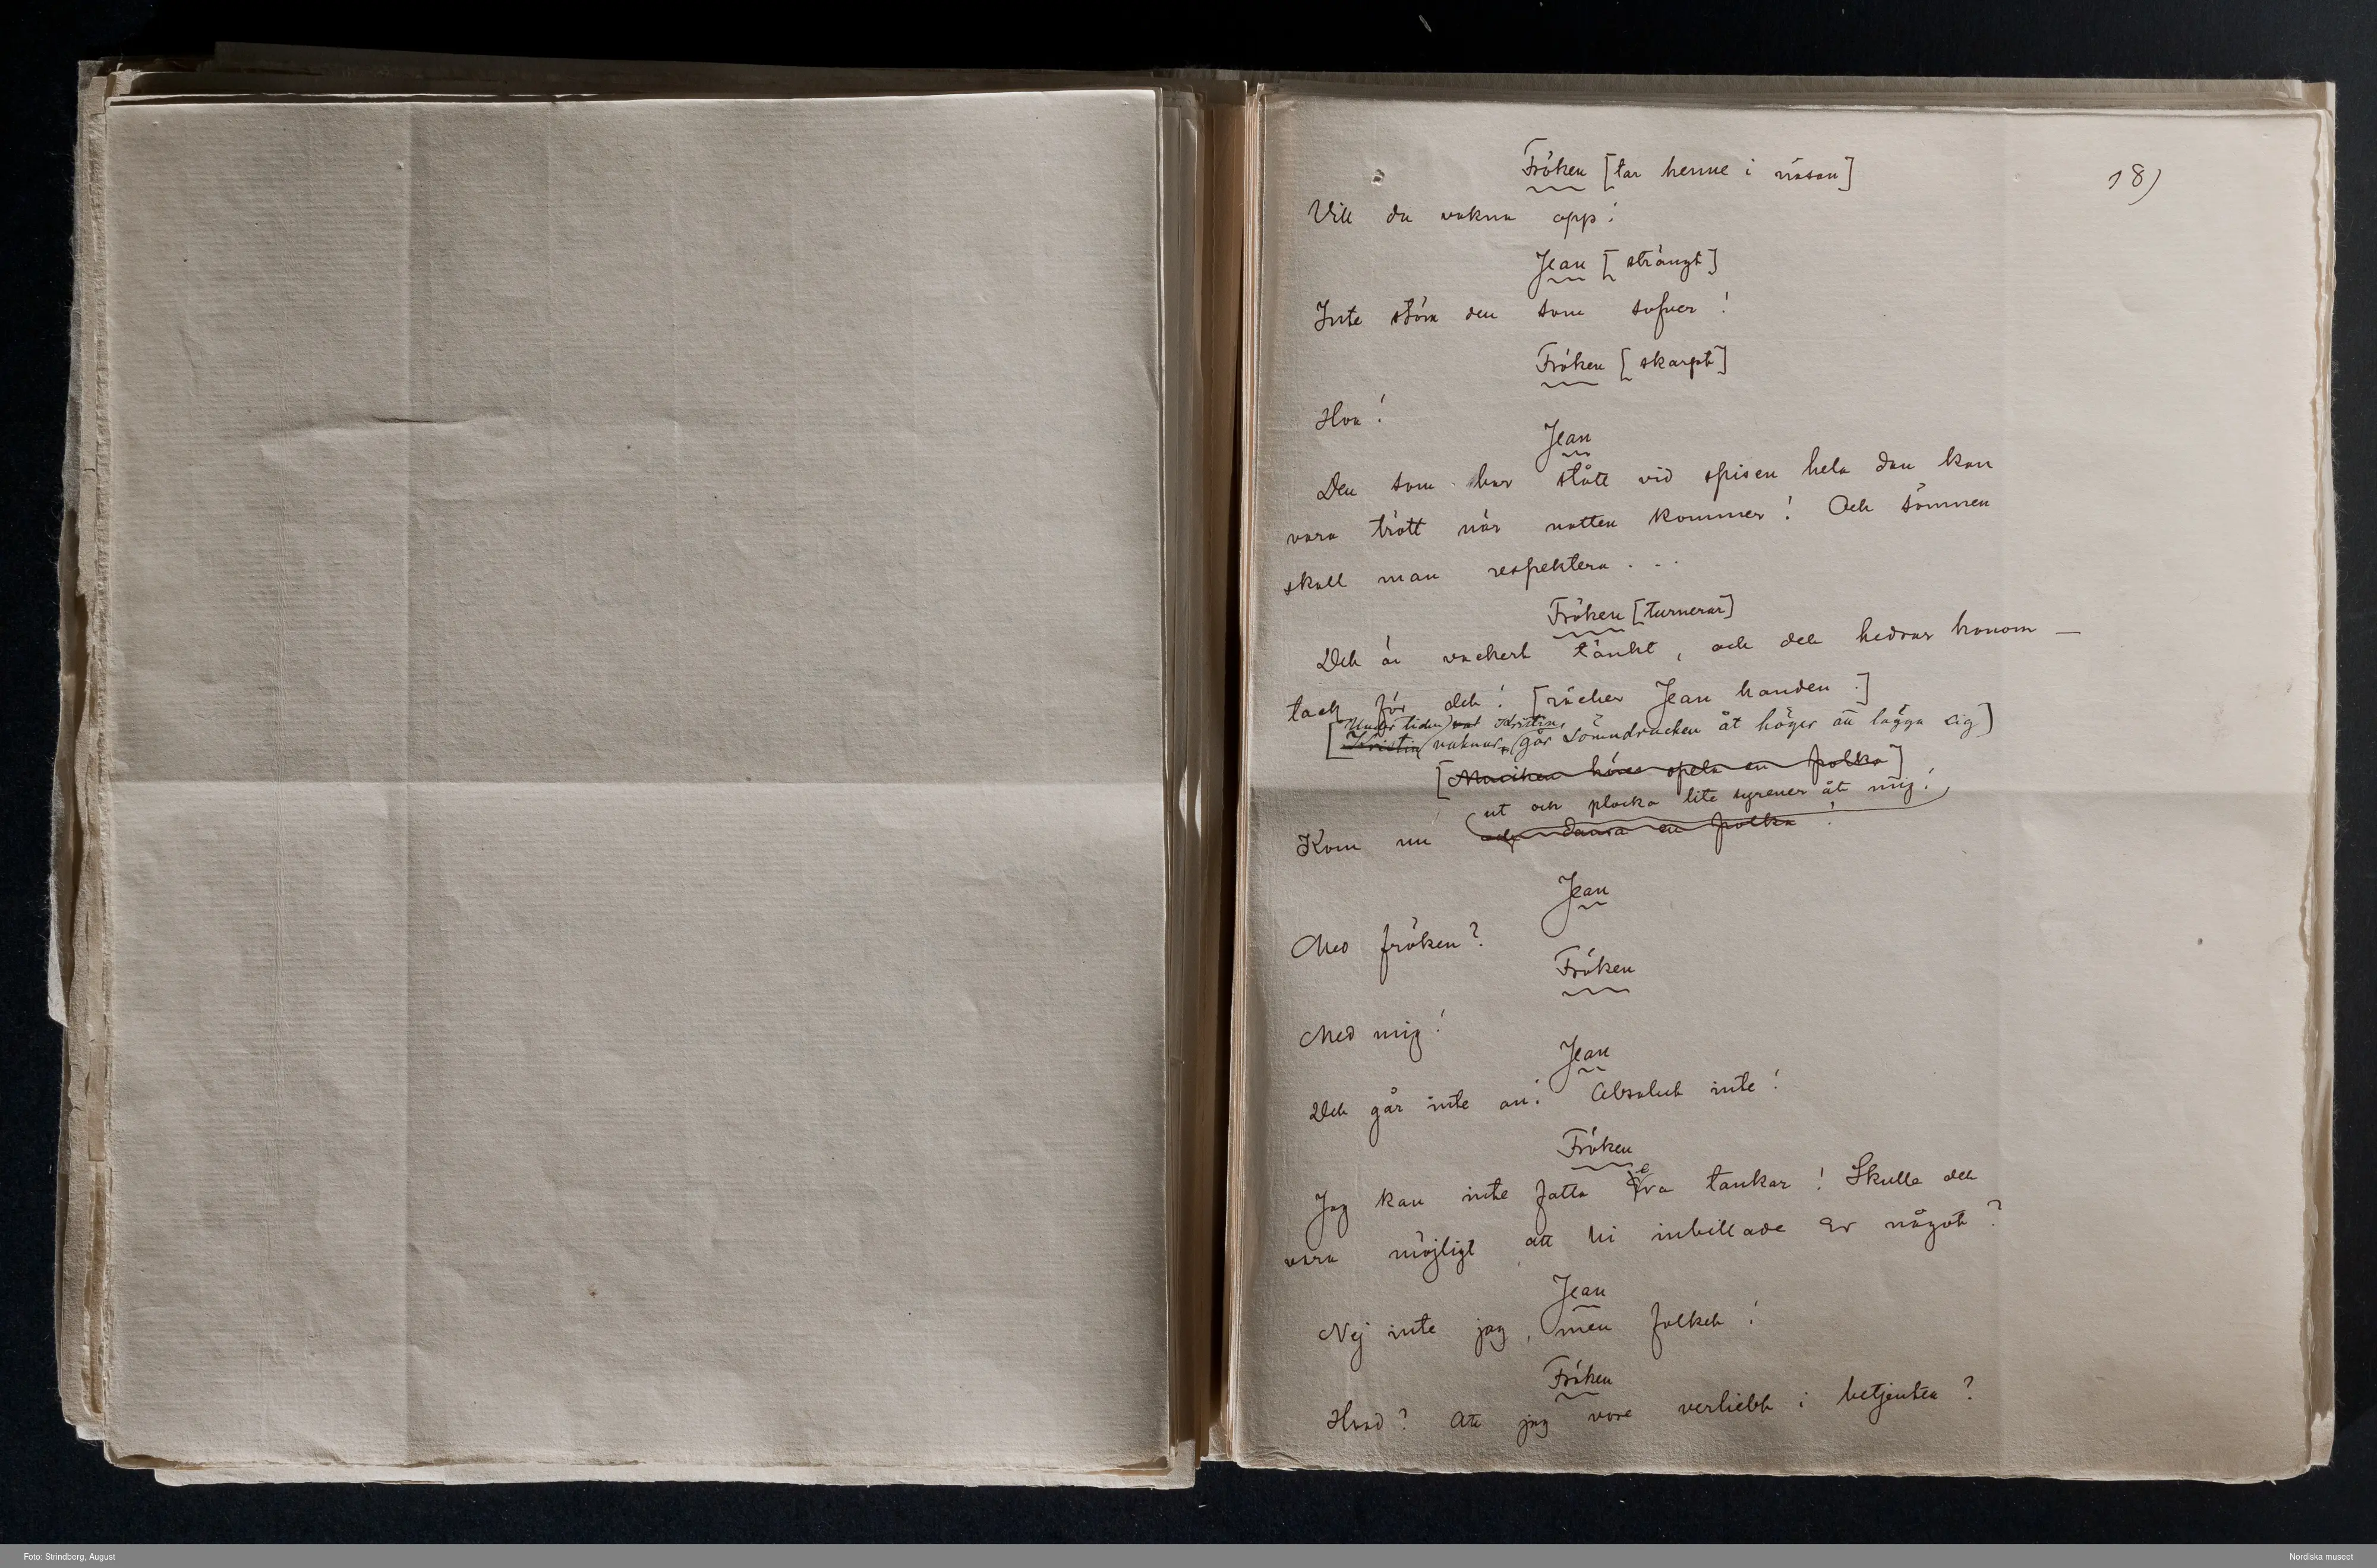 Fröken [tar henne i näsan]
18)
Vill du vakna opp!
Jean [strängt]
Inte störa den som sofver!
Fröken [skarpt]
Hva!
Jean
Den som har stått vid spisen hela dan kan
vara trött när natten kommer! Och sömnen
skall man respektera . . .
Fröken [turnerar]
Det är vackert tänkt, och det hedrar honom —
tack för det! [räcker Jean handen.]
Under tiden Kristin
[Kristin vaknar, går sömndrucken åt höger att lägga sig]
[Musiken höres spela en polka]
ut och plocka lite syrener åt mig!
Kom nu och dansa en polka!
Jean
Med fröken?
Fröken
Med mig!
Jean
Det går inte an! Absolut inte!
Fröken
Jag kan inte fatta era tankar! Skulle det
vara möjligt att Ni inbillade Er något?
Jean
Nej inte jag, men folket!
Fröken
Hvad? Att jag vore verliebt i betjenten?
Foto: Strindberg, August
Nordiska museet